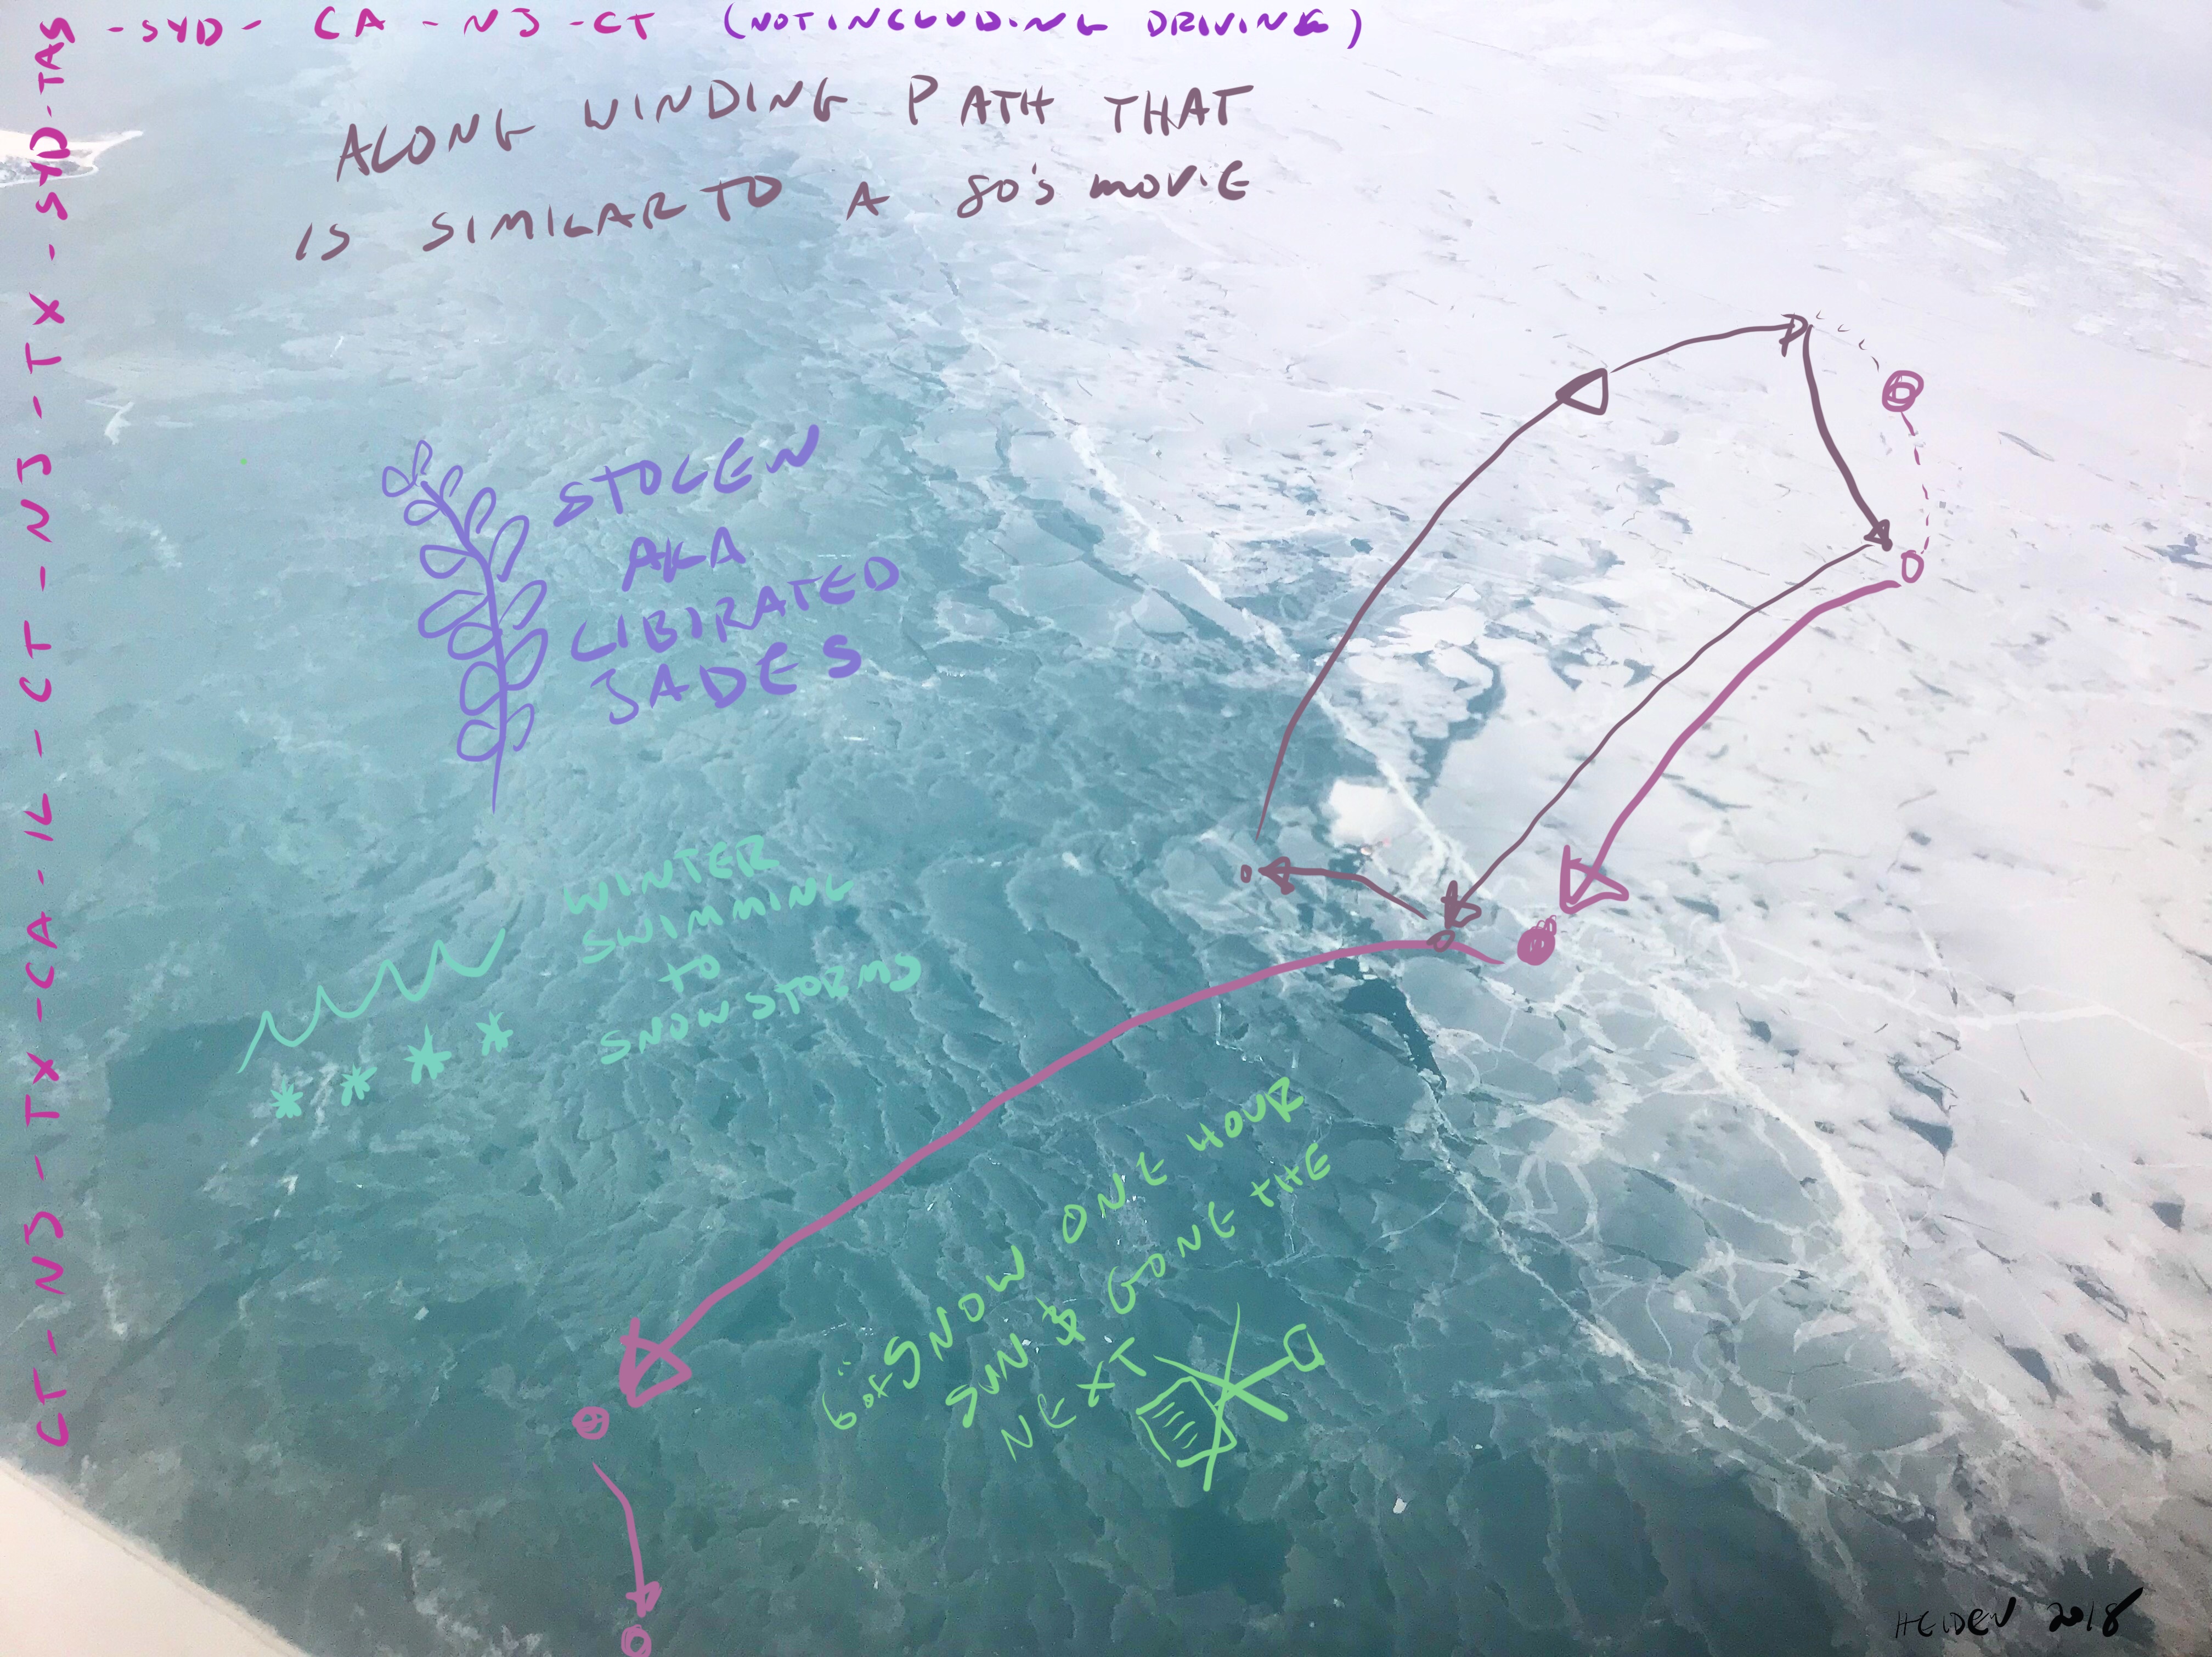 CT - NJ - TX - CA - IL - CT - NJ - TX - SYD - TAS
- SYD - CA - NJ - CT (NOT INCLUDING DRIVING)
ALONG WINDING PATH THAT
IS SIMILAR TO A 80's MOVIE
STOLEN
AKA
LIBIRATED
JADES
WINTER
SWIMMING
to
SNOW STORMS
6" of SNOW ONE HOUR
SUN & GONE THE
NEXT
HEIDEN 2018